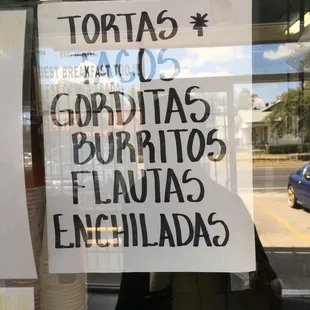 TORTAS *
TACOS
BEST BREAKFAST
GORDITAS
BURRITOS
FLAUTAS
ENCHILADAS